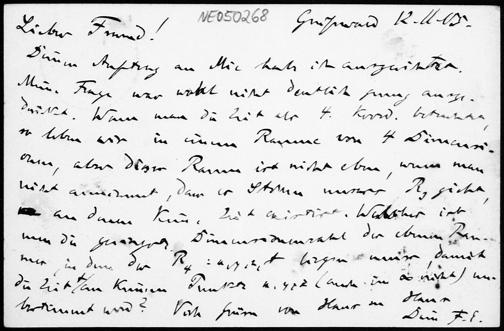 NE050268
Grunewald 12.II.05.
Lieber Freund!
Deinen Auftrag an Mie habe ich ausgerichtet.
Meine Frage war wohl nicht deutlich genug ausge-
drückt. Wenn man die Zeit als 4. Koord. betrachtet,
so leben wir in einem Raume von 4 Dimensi-
onen, aber dieser Raum ist nicht eben, wenn man
nicht annimmt, dass es Stellen unseres R3 giebt,
an denen keine Zeit existirt. Welcher ist
nun die geringste Dimensionenzahl des ebenen Rau-
mes, in dem der R4 = x,y,z,t liegen muss, damit
die Zeit an keinem Punkte x,y,z (auch im ∞ nicht) un-
bestimmt wird? Viele Grüsse von Haus zu Haus
Dein F.E.